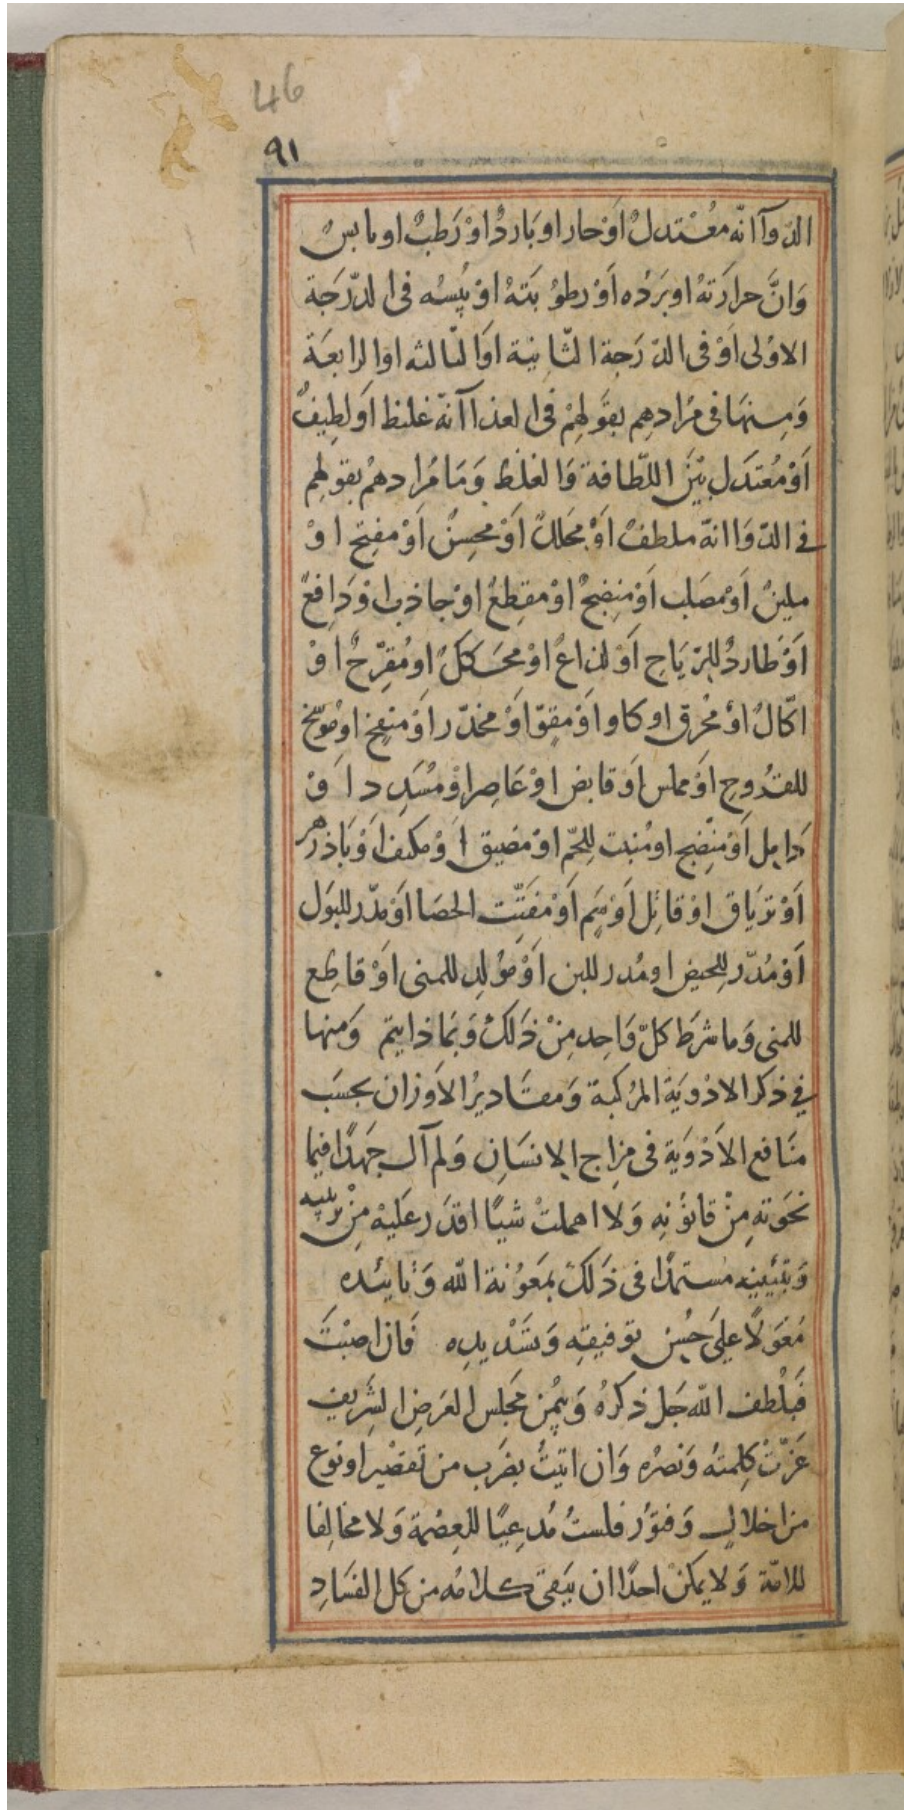 46
٩١
الدوآ انّه معْتدلٌ اَوْحار او بَاردٌ اوْ رَطبٌ او يابسٌ
وَانَّ حرارَتهُ او بَرْده اَوْ رطوُبَتهُ اوْ يُبسُه فى الدّرَجَة
الاوْلى اَوْ فى الدّرَجِة الثّاِنِية اوَالثّالثه اوَالرابعَة
وَمِنهَا فى مُرَادهِم بقَوَلهِمْ فى الغذاآ انّه غلظ اَوَلطِيفٌ
اَوْمُعتدَل بَيْنَ اللّطافة وَالغلظ وَمَا مُرادهُم بقولهم
فى الدّوَا انّه ملطفٌ اَوْ محَللٌ اَوْ محسِنٌ اَوْ مفتح اوْ
ملينٌ اَوْ مصَلب اَوْ مِنضِجٌ اوْ مقطِعٌ اوْ جاذب اوْ دَافِعٌ
اَوْ طاردٌ للِرّيَاحِ اَوْ لذاعٌ اوْ محَككٌ او مُقرّحٌ اوْ
اكّالٌ اوْ مُحْرق او كاو اوْ مقِوّ اَوْ مخدّر اَوْ منفخ او مُوسّخ
للقُروحِ اَوْ مملس اَوْ قابض اوْ عَاصِر اوْ مُسَدِد اوْ
دَامِل اَوْ مِنْضِج او مُنبَت لِلحّم اوْ مَضيق اَوْ مكثف اَوْ بَاذزهر
اَوْ ترَيَاق اوْ قاتِل اَوْ سَم اَوْ مفَتّت الحصَا اوَ مُدّر للبَول
اَوْ مُدّر لِلحيض او مُدر للبن اَوْ مُولِد للمنى اَوْ قاطِع
للمنى وَما شرَط كلّ وَاحِد مِنْ ذلكَ وَبَماذا يتم وَمنها
فى ذكر الادْويَة المرُكّبة وَمقاديرُ الاَوْزان بحسَب
مَنافع الاَدْوَيَة فى مِزاج الانسَانِ وَلم آل جهدًا فيما
نحَوَته مِنْ قانوُنِهِ وَلا اهملتْ شيًا اقدَر عَليْه مِنْ
وَتبَيينِه مستمدًا فى ذَلكَ بمعَوُنة اللّه وَتاييْده
مَعَوَلاً علىَ حُسْن توفيقِه وَتسَْديدِه فَان اصبْتَ
فَبلُطف اللّه جَل ذكرهُ وَبيُمن مَجلسِ العَرضِ الشَرِيف
عَزّتْ كِلمتُه وَنصرُه وَان اتيتُ بضرَب من تَقصْير اونوع
من اخلالٍ وَفتوُر فلستُ مُدعِيًا للعِصْمَة وَلا مخالِفا
للامّة وَلا يمكنْ احدًا ان يَبقى كلامُه من كل الفسَادِ